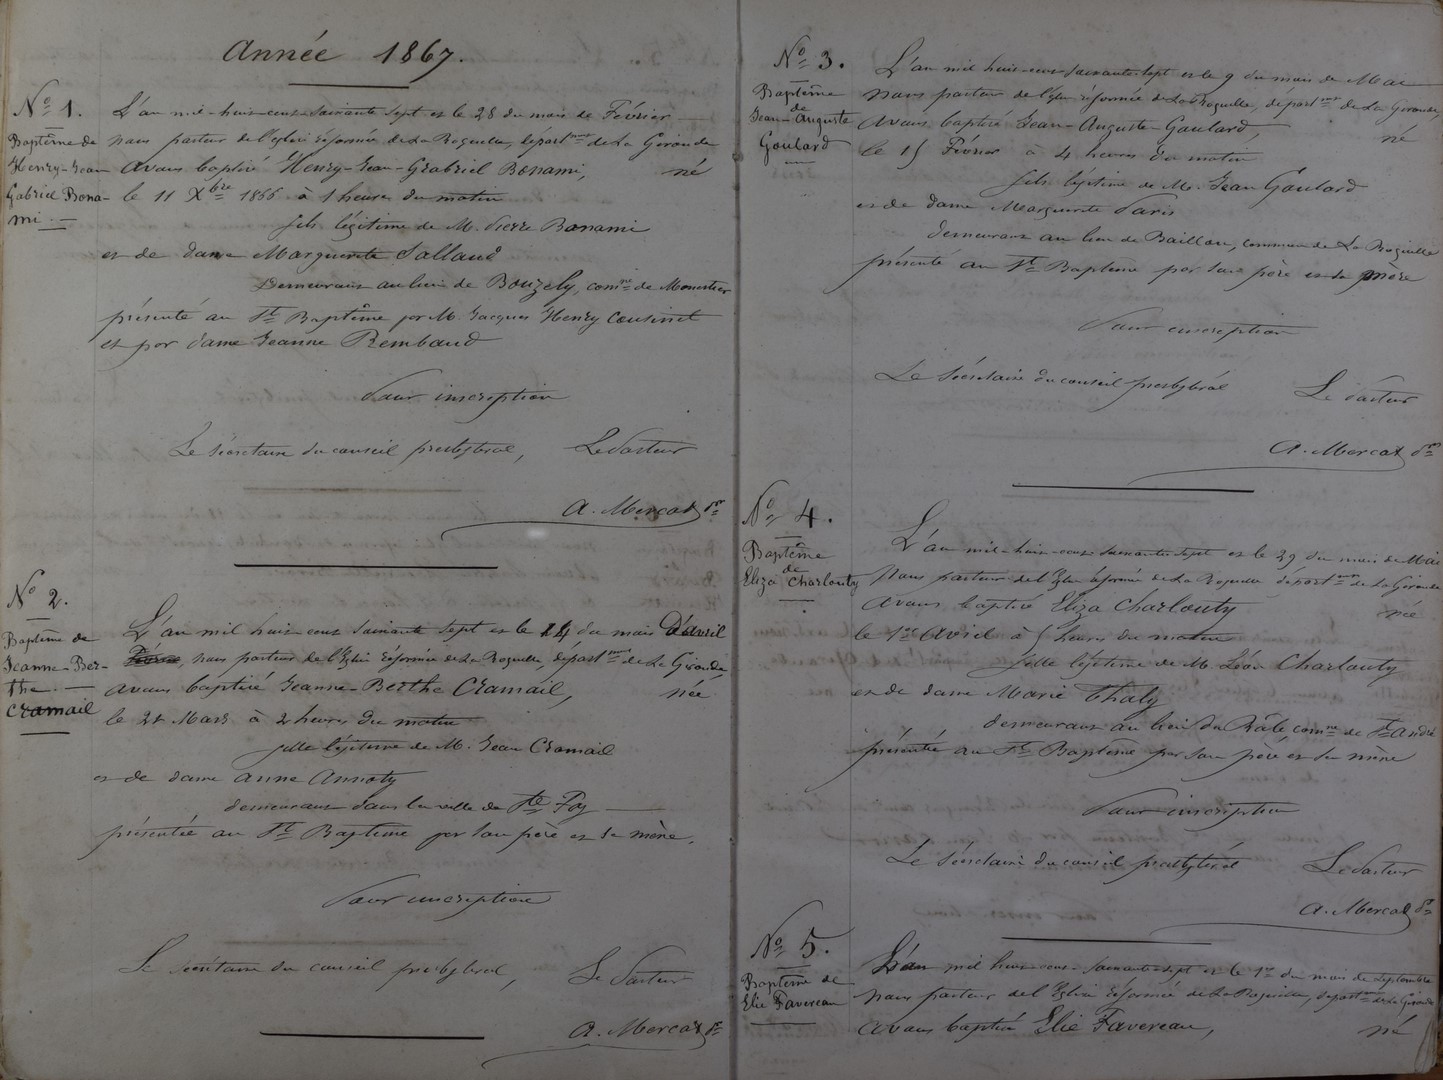 Année 1867.
N° 1.
Baptême de
Henry-Jean
Gabriel Bona-
mi. —
L'an mil-huit-cent-soixante sept et le 28 du mois de Février
nous pasteur de l'église réformée de La Roquille, départ.ment de La Gironde
avons baptisé Henry-Jean-Gabriel Bonami, né
le 11 Xbre 1866 à 1 heure du matin
fils légitime de M. Pierre Bonami
et de dame Marguerite Sallaud
Demeurant au lieu de Bouzely, com.ne de Monestier
présenté au St Baptême par M. Jacques Henry Cousinet
et par dame Jeanne Rembaud
Pour inscription
Le secrétaire du conseil presbytéral, Le Pasteur
A. Mercat pr
N° 2.
Baptême de
Jeanne-Ber-
the. —
Cramail
L'an mil huit cent soixante sept et le 14 du mois D'avril
nous pasteur de l'Eglise réformée de La Roquille, départ.ment de La Gironde,
avons baptisé Jeanne-Berthe Cramail, née
le 21 Mars à 2 heures du matin
fille légitime de M. Jean Cramail
et de dame Anne Annoty
demeurant dans la ville de Ste Foy
présentée au St Baptême par son père et sa mère.
Pour inscription
Le secrétaire du conseil presbytéral, Le Pasteur
A. Mercat pr
N° 3.
Baptême
de
Jean-Auguste
Goulard
L'an mil huit-cent-soixante-sept et le 9 du mois de Mai
nous pasteur de l'église réformée de La Roquille, départ.ment de La Gironde,
avons baptisé Jean-Auguste-Goulard, né
le 15 Février à 4 heures du matin
fils légitime de M. Jean Goulard
et de dame Marguerite Paris
demeurant au lieu de Baillou, commune de La Roquille
présenté au St Baptême par son père et sa mère
Pour inscription
Le Sécrétaire du conseil presbytéral Le Pasteur
A. Mercat pr
N° 4.
Baptême
de
Eliza Charlouty
L'an mil-huit-cent-soixante-sept et le 29 du mois de Mai
Nous pasteur de l'Eglise réformée de La Roquille départ.ment de La Gironde
avons baptisé Eliza Charlouty née
le 1er Avril à 5 heures du matin
fille légitime de M. Léon Charlouty
et de dame Marie Thaly
demeurant au lieu du Râle com.ne de St André
présentée au St Baptême par son père et sa mère
Pour inscription
Le Sécrétaire du conseil presbytéral Le Pasteur
A. Mercat pr
N° 5.
Baptême de
Elie Favereau
L'an mil huit-cent-soixante-sept et le 1er du mois de Septembre
nous pasteur de l'Eglise réformée de La Roquille, départ.ment de La Gironde
avons baptisé Elie Favereau, né